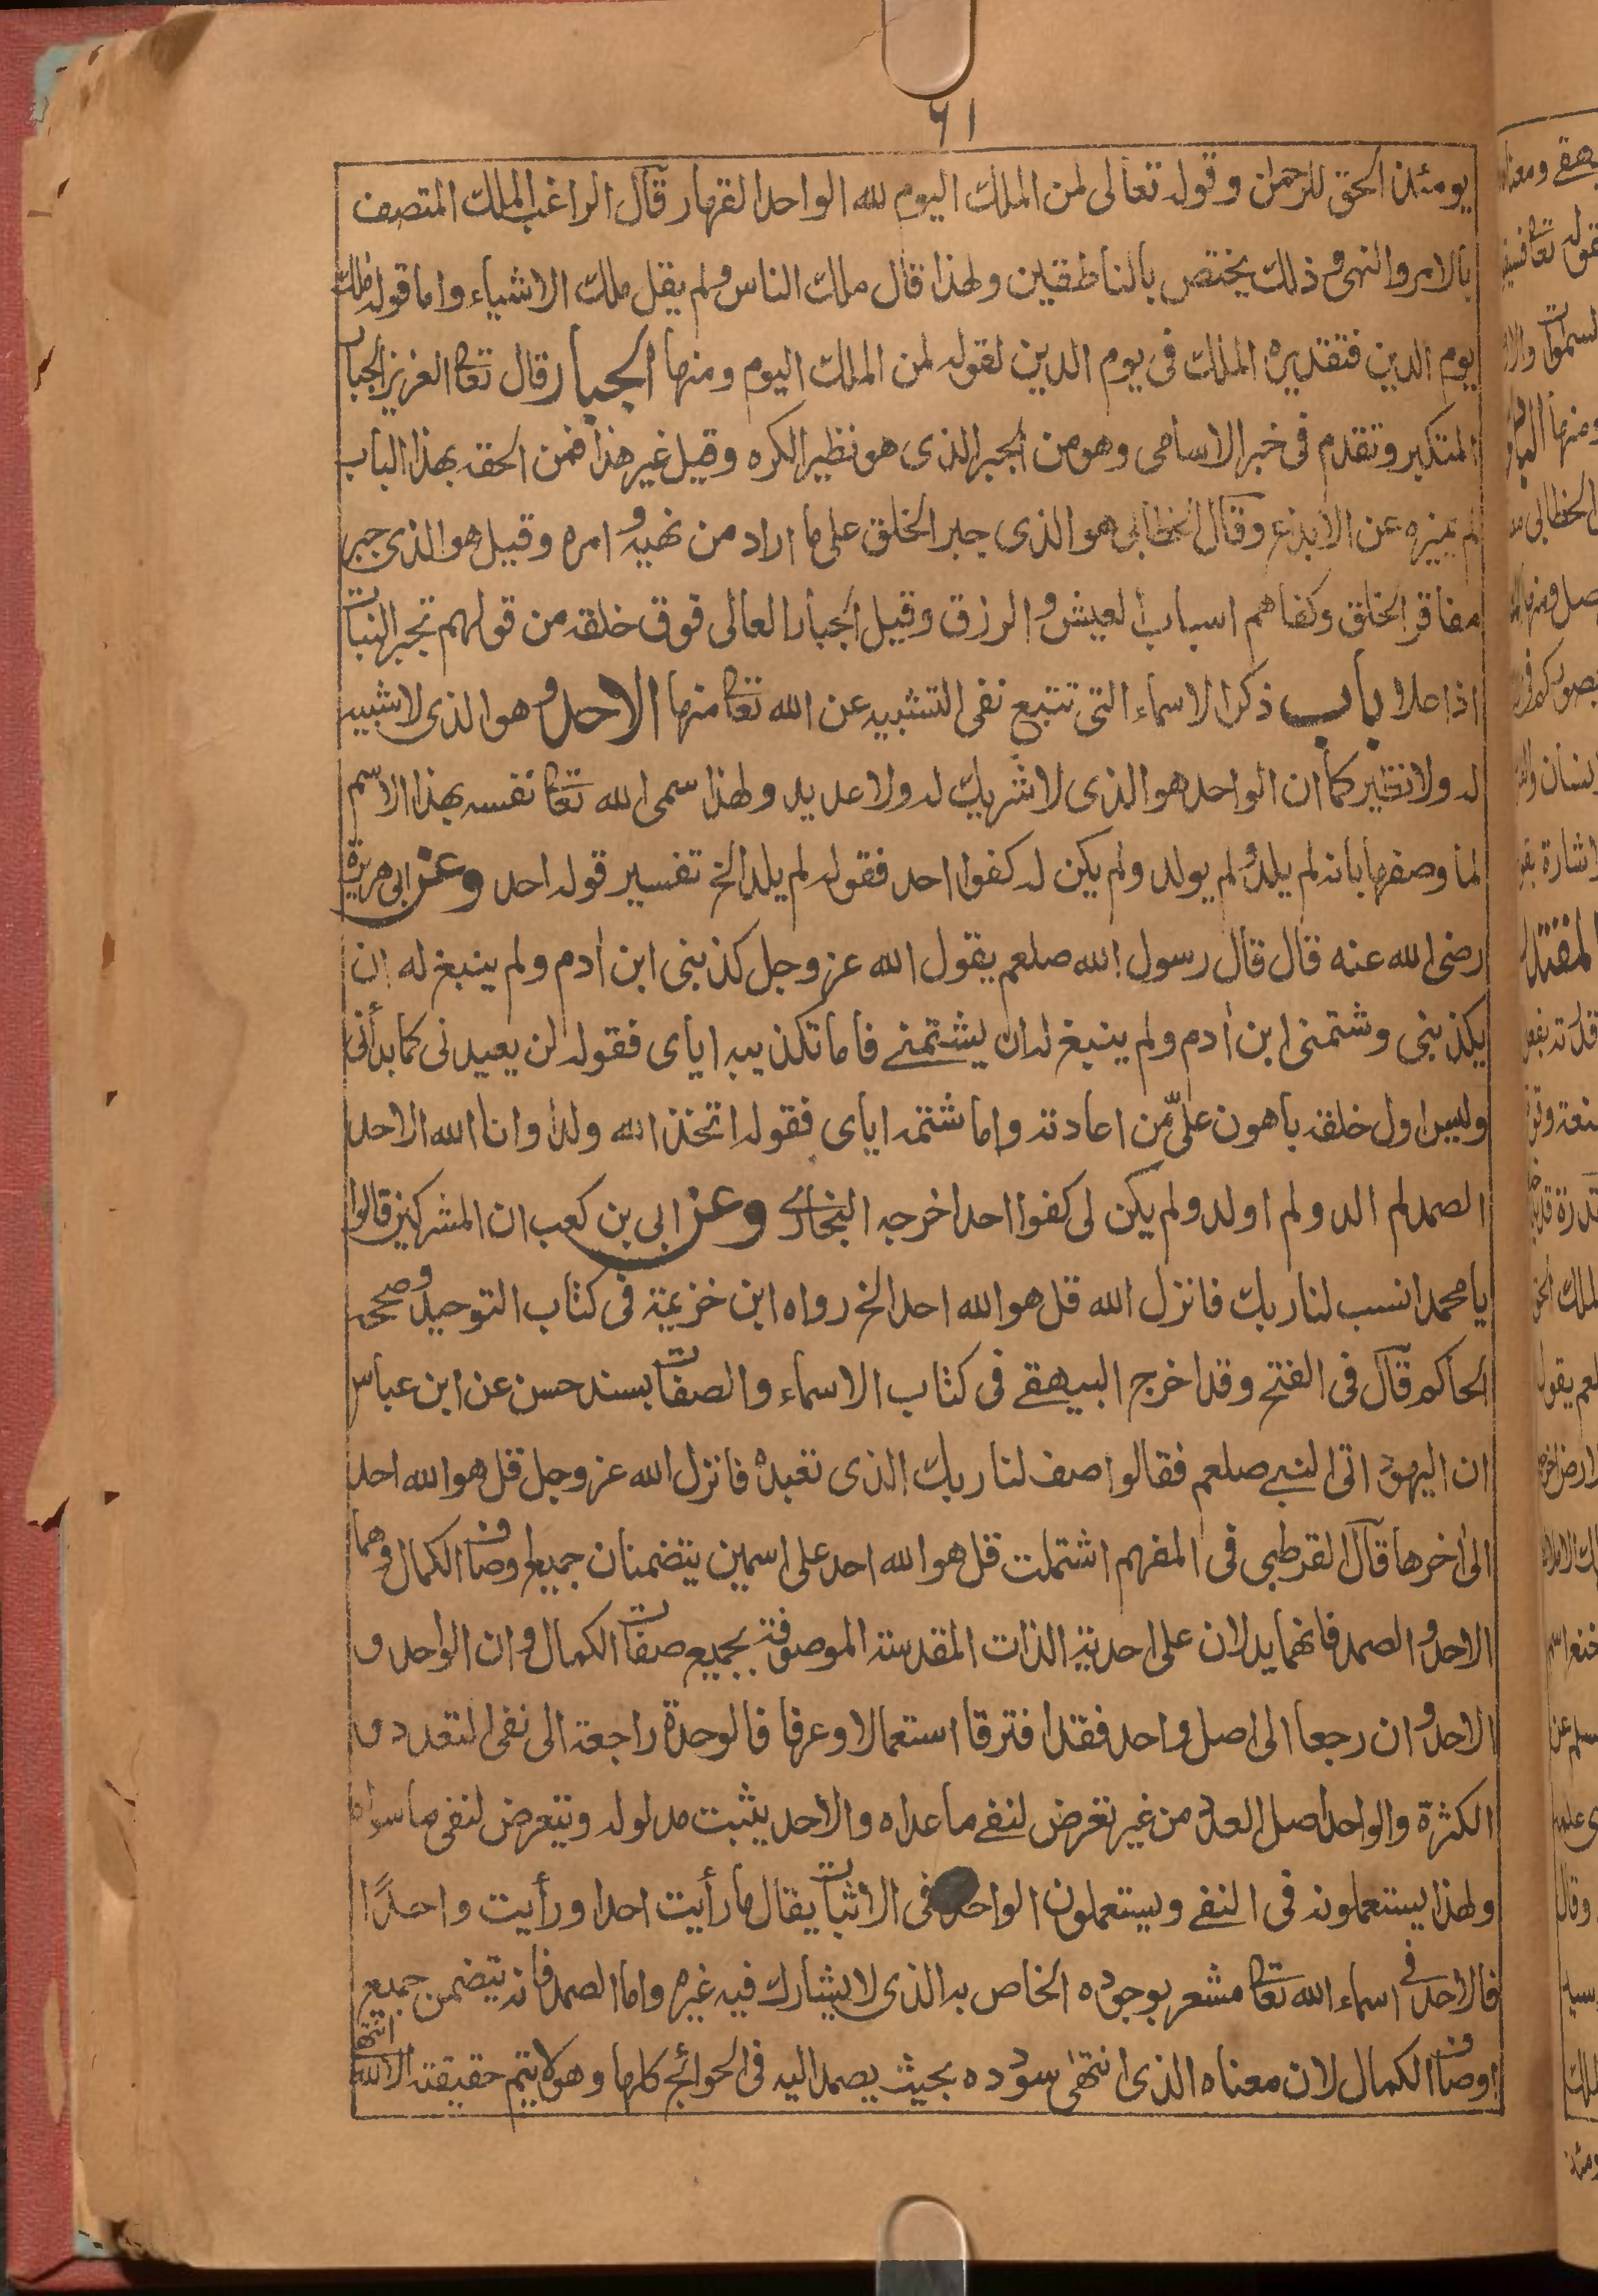 ٦١
يومئذن الحق للرحمن وقوله تعالى لمن الملك اليوم لله الواحد القهار قال الراغب الملك المتصف
بالامر والنهى وذلك يختص بالناطقين ولهذا قال ملك الناس ولم يقل ملك الاشياء واما قوله ملك
يوم الدين فتقديره الملك فى يوم الدين لقوله لمن الملك اليوم ومنها الجبار قال تعا العزيز الجبار
المتكبر وتقدم فى خبر الاسامى وهو من الجبر الذى هو نظير الكره وقيل غير هذا فمن الحقه بهذا الباب
لم يميزه عن الابدع وقال الخطابى هو الذى جبر الخلق على ما اراد من نهيه و امره وقيل هو الذى جبر
مفاقر الخلق وكفاهم اسباب لعيش و الرزق وقيل الجبار العالى فوق خلقه من قولهم تجبر النبات
اذا علا باب ذكر الاسماء التى تتبع نفى التشبيه عن الله تعا منها الاحد وهو الذى لا شبيه
له ولا نظير كما ان الواحد هو الذى لا شريك له ولا عديد ولهذا سمى الله تعا نفسه بهذا الاسم
لما وصفها بانه لم يلد و لم يولد ولم يكن له كفوا احد فقوله لم يلد الخ تفسير قوله احد وعن ابى هريرة
رضى الله عنه قال قال رسول الله صلعم يقول الله عز وجل كذبنى ابن أدم ولم ينبغ له ان
يكذبنى وشتمنى ابن أدم ولم ينبغ له ان يشتمنے فاما تكذيبه اياى فقوله لن يعيدنى كما بدأنى
وليس اول خلقه باهون علىّ من اعادته واما شتمه اياى فقوله اتخذ الله ولدا وانا الله الاحد
الصمد لم الد ولم اولد ولم يكن لى كفوا احد اخرجه البخارے وعن ابى بن كعب ان المشركين قالوا
يا محمد انسب لنا ربك فانزل الله قل هو الله احد الخ رواه ابن خزيمة فى كتاب التوحيد وصححه
الحاكم قال فى الفتح وقد اخرج البيهقے فى كتاب الاسماء والصفات بسند حسن عن ابن عباس
ان اليهود اتى النبے صلعم فقالوا صف لنا ربك الذى تعبده فانزل الله عز وجل قل هو الله احد
الى اخرها قال القرطبى فى المفهم اشتملت قل هو الله احد على اسمين يتضمنان جميع اوصاف الكمال وهما
الاحد و الصمد فانهما يدلان على احدية الذات المقدسة الموصوفة بجميع صفات الكمال و ان الواحد و
الاحد و ان رجعا الى اصل واحد فقد افترقا استعمالا وعرفا فالوحدة راجعة الى نفى التعدد و
الكثرة والواحد اصل العدد من غير تعرض لنفے ما عداه والاحد يثبت مدلوله ويتعرض لنفى ما سواه
ولهذا يستعملونه فى النفے ويستعملون الواحد فى الاثبات يقال ما رأيت احدا ورأيت واحدًا
فالاحد فى اسماء الله تعا مشعر بوجوده الخاص به الذى لا يشارك فيه غيره واما الصمد فانه يتضمن جميع
اوصاف الكمال لان معناه الذى انتهى سودده بحيث يصمد اليه فى الحوائج كلها وهو لا يتم حقيقة الا لله انتهى